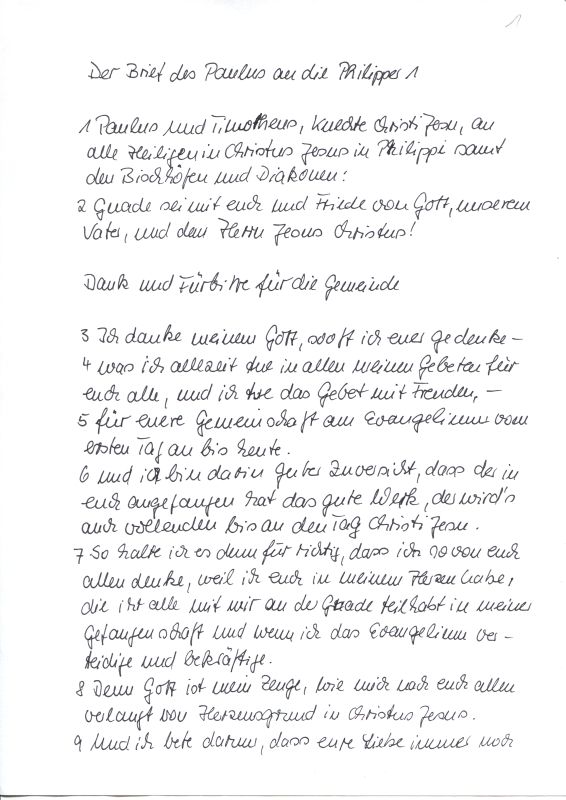 1
Der Brief des Paulus an die Philipper 1
1 Paulus und Timotheus, Knechte Christi Jesu, an
alle Heiligen in Christus Jesus in Philippi samt
den Bischöfen und Diakonen:
2 Gnade sei mit euch und Friede von Gott, unserem
Vater, und dem Herrn Jesus Christus!
Dank und Fürbitte für die Gemeinde
3 Ich danke meinem Gott, sooft ich euer gedenke –
4 was ich allezeit tue in allen meinen Gebeten für
euch alle, und ich tue das Gebet mit Freuden, –
5 für eure Gemeinschaft am Evangelium vom
ersten Tag an bis heute.
6 und ich bin darin guter Zuversicht, dass der in
euch angefangen hat das gute Werk, der wird's
auch vollenden bis an den Tag Christi Jesu.
7 So halte ich es denn für richtig, dass ich so von euch
allen denke, weil ich euch in meinem Herzen habe,
die ihr alle mit mir an der Gnade teilhabt in meiner
Gefangenschaft und wenn ich das Evangelium ver-
teidige und bekräftige.
8 Denn Gott ist mein Zeuge, wie mich nach euch allen
verlangt von Herzensgrund in Christus Jesus.
9 Und ich bete darum, dass eure Liebe immer noch